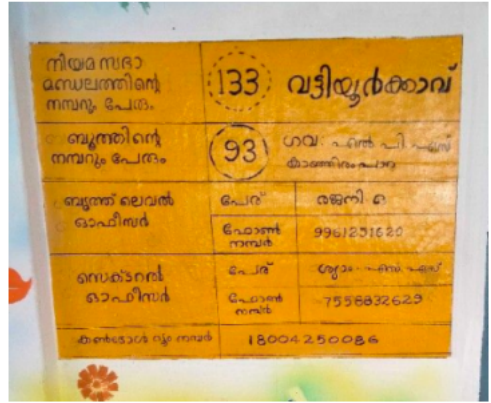 നിയമസഭാ
മണ്ഡലത്തിന്റെ
നമ്പറും, പേരും.
133 വട്ടിയൂർക്കാവ്
ബൂത്തിന്റെ
നമ്പറും പേരും
93 ഗവ. എൽ പി എസ്
കാഞ്ഞിരംപാറ
ബൂത്ത് ലെവൽ
ഓഫീസർ
പേര് രജനി
ഫോൺ
നമ്പർ
9961251620
സെക്ടറൽ
ഓഫീസർ
പേര് ശ്യാം എസ് എസ്
ഫോൺ
നമ്പർ
7558832629
കൺട്രോൾ റൂം നമ്പർ 18004250086